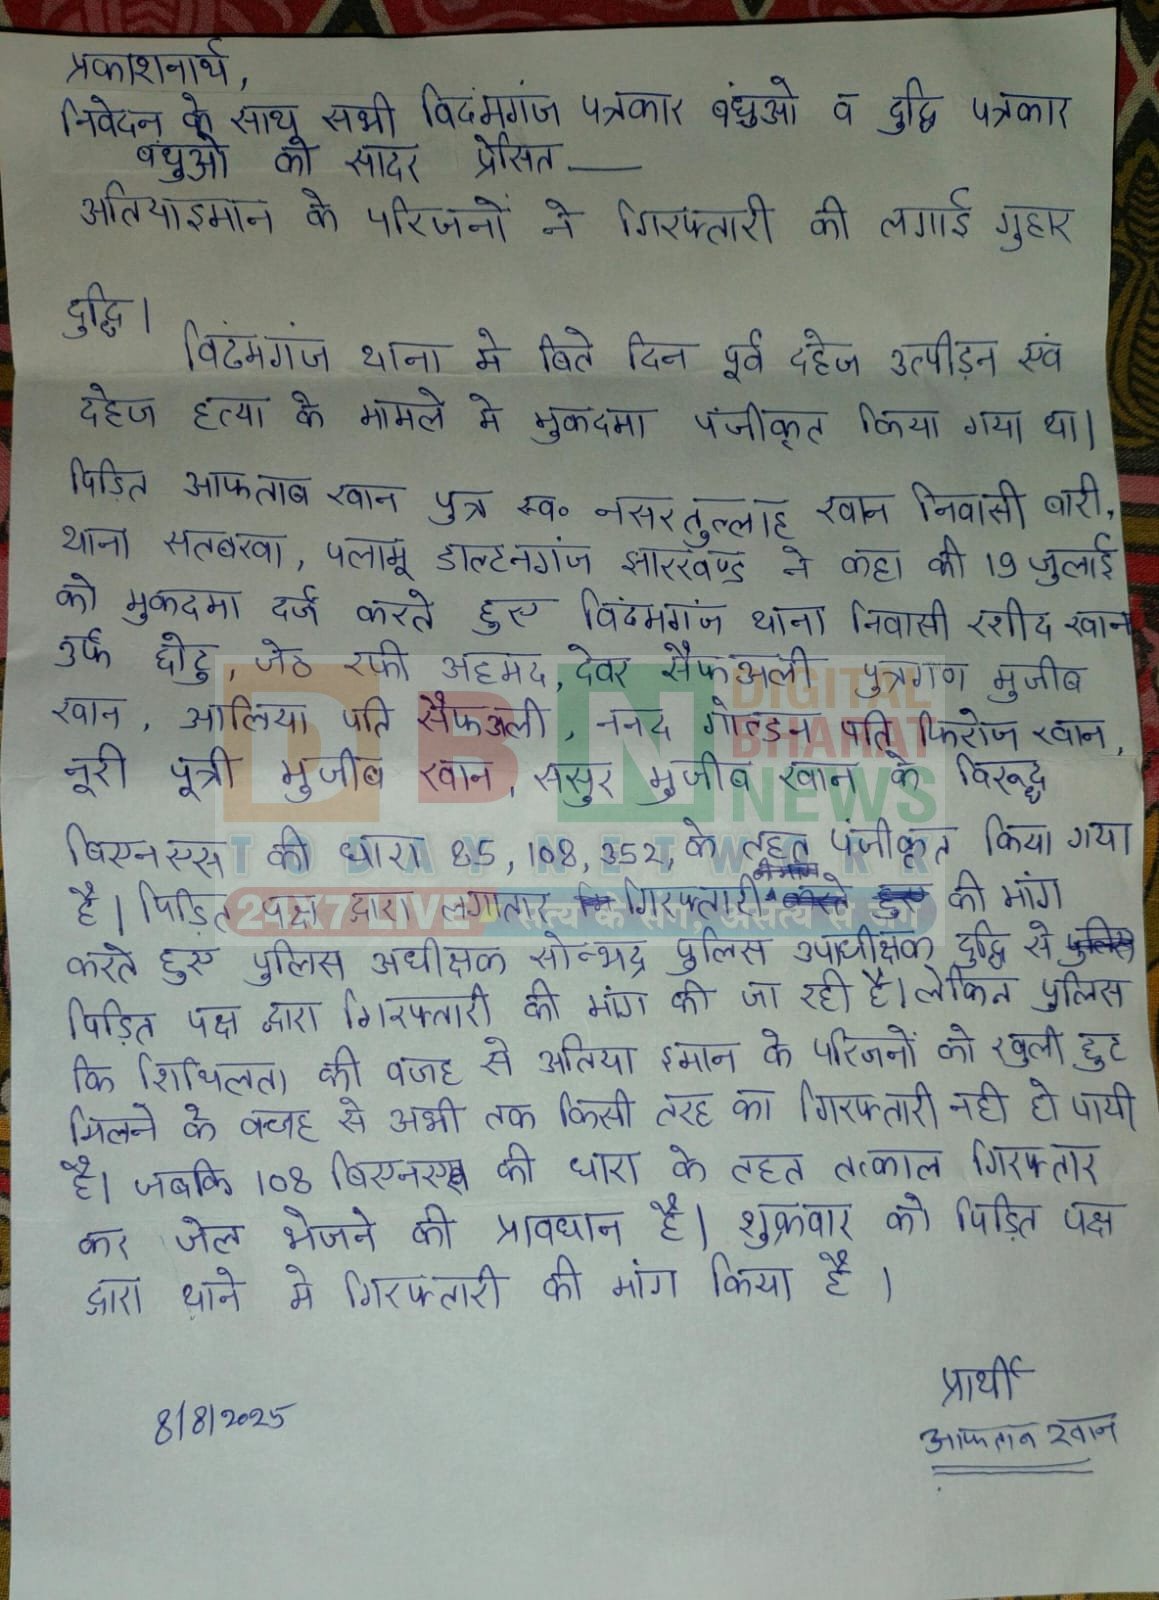 प्रकाशनार्थ,
निवेदन के साथ सभी विढंमगंज पत्रकार बंधुओ व दुद्धि पत्रकार
बंधुओ को सादर प्रेसित —
अतियाइमान के परिजनों ने गिरफ्तारी की लगाई गुहार
दुद्धि।
विढंमगंज थाना मे बिते दिन पूर्व दहेज उत्पीड़न एवं
दहेज हत्या के मामले मे मुकदमा पंजीकृत किया गया था।
पिड़ित आफताब खान पुत्र स्व॰ नसरतुल्लाह खान निवासी बारी,
थाना सतबरवा, पलामू डाल्टनगंज झारखण्ड ने कहा की 19 जुलाई
को मुकदमा दर्ज करते हुए विढंमगंज थाना निवासी रशीद खान
उर्फ छोटु, जेठ रफी अहमद, देवर सैफअली पुत्रगण मुजीब
खान, आलिया पति सैफअली, ननद गोल्डन पति फिरोज खान,
नूरी पूत्री मुजीब खान, ससुर मुजीब खान के विरूद्ध
बिएनएस की धारा 85, 108, 352, के तहत पंजीकृत किया गया
है। पिड़ित पक्ष द्वारा लगातार गिरफ्तारी की मांग
करते हुए पुलिस अधीक्षक सोनभद्र पुलिस उपाधीक्षक दुद्धि से पुलिस
पिड़ित पक्ष द्वारा गिरफ्तारी की मांग की जा रही है। लेकिन पुलिस
कि शिथिलता की वजह से अतिया इमान के परिजनों को खुली छुट
मिलने के वजह से अभी तक किसी तरह का गिरफ्तारी नही हो पायी
है। जबकि 108 बिएनएस की धारा के तहत तत्काल गिरफ्तार
कर जेल भेजने की प्रावधान है। शुक्रवार को पिड़ित पक्ष
द्वारा थाने मे गिरफ्तारी की मांग किया है।
प्रार्थी
8/8/2025
आफताब खान
DBN DIGITAL BHARAT NEWS
TODAY NETWORK
24x7 LIVE सत्य के संग, असत्य से जंग